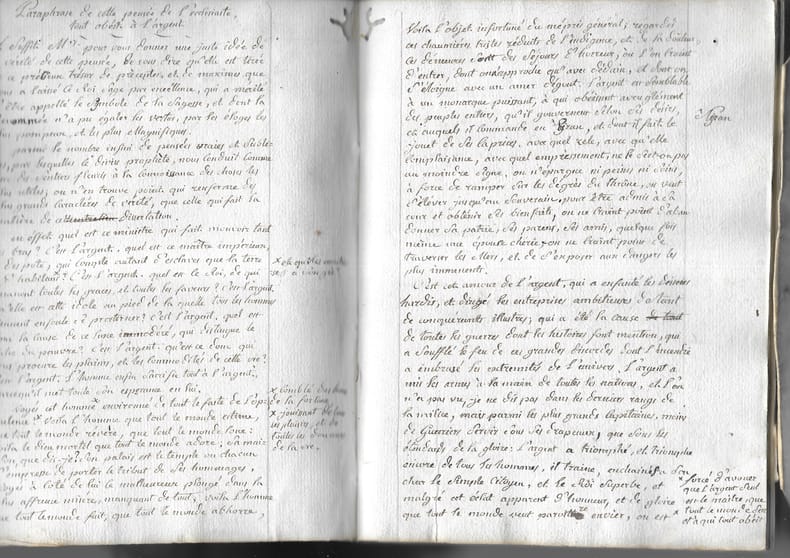 Paraphrase de cette pensée de l'ecclesiaste,
tout obéit à l'argent.
Il Suffit Mrs. pour vous donner une juste idée de
verité de cette pensée, de vous dire qu'elle est tirée
ce précieux tresor de préceptes, et de maximes que
nous a laissé ce Roi Sage par excellence, qui a merité
d'être appellé le Symbole de la Sagesse, et dont la
renommée n'a pu égaler les vertus, par les éloges les
plus pompeux, et les plus Magnifiques.
parmi le nombre infini de pensées vraies et Subli-
mes, par lesquelles le divin prophète, nous conduit comme
par des Sentiers fleuris à la connoissance des choses les
plus utiles, on n'en trouve point, qui renferme de
plus grands caracteres de verité, que celle qui fait la
matière de dissertation.
en effet quel est ce ministre qui fait mouvoir tant
bras? C'est l'argent. quel est ce maître imperieux,
despote, qui compte autant d'esclaves que la terre
d'habitans? C'est l'argent. quel est le Roi, de qui
émanent toutes les graces, et toutes les faveurs? C'est l'argent.
quelle est cette idole au pied de la quelle tous les hommes
viennent en foule? prosterner? C'est l'argent. quel est
la cause de ce luxe immoderé, qui distingue le
riche du pauvre? C'est l'argent. qu'est ce donc qui
nous procure les plaisirs, et les commodités de cette vie?
C'est l'argent. L'homme enfin Sacrifie tout à l'argent,
puisqu'il met toute Son esperance en lui.
Voyés cet homme x environné de tout le faste de l'opu-
lence x Voila l'homme que tout le monde estime,
que tout le monde révère, que tout le monde loue:
voila le dieu mortel que tout le monde adore; sa mai-
son, que dis-je? Son palais est le temple ou chacun
s'empresse de porter le tribut de Ses hommages,
voyés à coté de lui le malheureux plongé dans la
plus affreuse misère, manquant de tout; voila l'homme
que tout le monde fuit, que tout le monde abhorre,
x comblé des
de la fortune,
x jouissant de tous
les plaisirs, et de
toutes les douceurs
de la vie.
Voila l'objet infortuné du mépris général; regardés
ces chaumières tristes réduits de l'indigence, et de la douleur,
ces demeures Sont des Séjours d'horreur, ou l'on craint
d'entrer, dont on n'approche qu'avec dédain, et dont on
S'éloigne avec un amer dégout. l'argent est Semblable
à un monarque puissant, à qui obéissent aveuglément
des peuples entiers, qu'il gouverne Selon Ses désirs,
et auxquels il commande en tiran, et dont il fait le
jouet de Ses caprices, avec quel zele, avec qu'elle
complaisance, avec quel empressement, ne le Sert-on pas
au moindre Signe, on n'épargne ni peines ni Soins,
à force de ramper Sur les dégrés du thrône, on veut
S'élever jusqu'au Souverain, pour être admis à Sa
cour et obtenir Ses bienfaits, on ne craint point d'aban
donner Sa patrie, Ses parens, Ses amis, quelque fois
même une épouse chérie & on ne craint point de
traverser les Mers, et de S'exposer aux dangers les
plus imminents.
tyran
C'est cet amour de l'argent, qui a enfanté les desseins
hardis, et dirigé les entreprises ambitieuses de tant
de conquerants illustres, qui a été la cause de tout
de toutes les guerres dont les histoires font mention, qui
a Soufflé le feu de ces grandes discordes dont l'incendie
a embrasé les extremités de l'univers. L'argent a
mis les armes à la main de toutes les nations, et l'on
n'a pas vu, je ne dis pas dans les derniers rangs de
la milice, mais parmi les plus grands Capitaines, moins
de Guerriers Servir Sous Ses drapeaux, que Sous les
étendards de la gloire: L'argent a triomphé, et triomphe
encore de tous les hommes, il traine, enchainés a Son
char le Simple Citoyen, et le Roi Superbe, et
malgré cet éclat apparent d'honneur, et de gloire
que tout le monde veut paroitre envier, on est x
x forcé d'avouer
que l'argent Seul
est le maître que
tout le monde Sert
et à qui tout obéit.